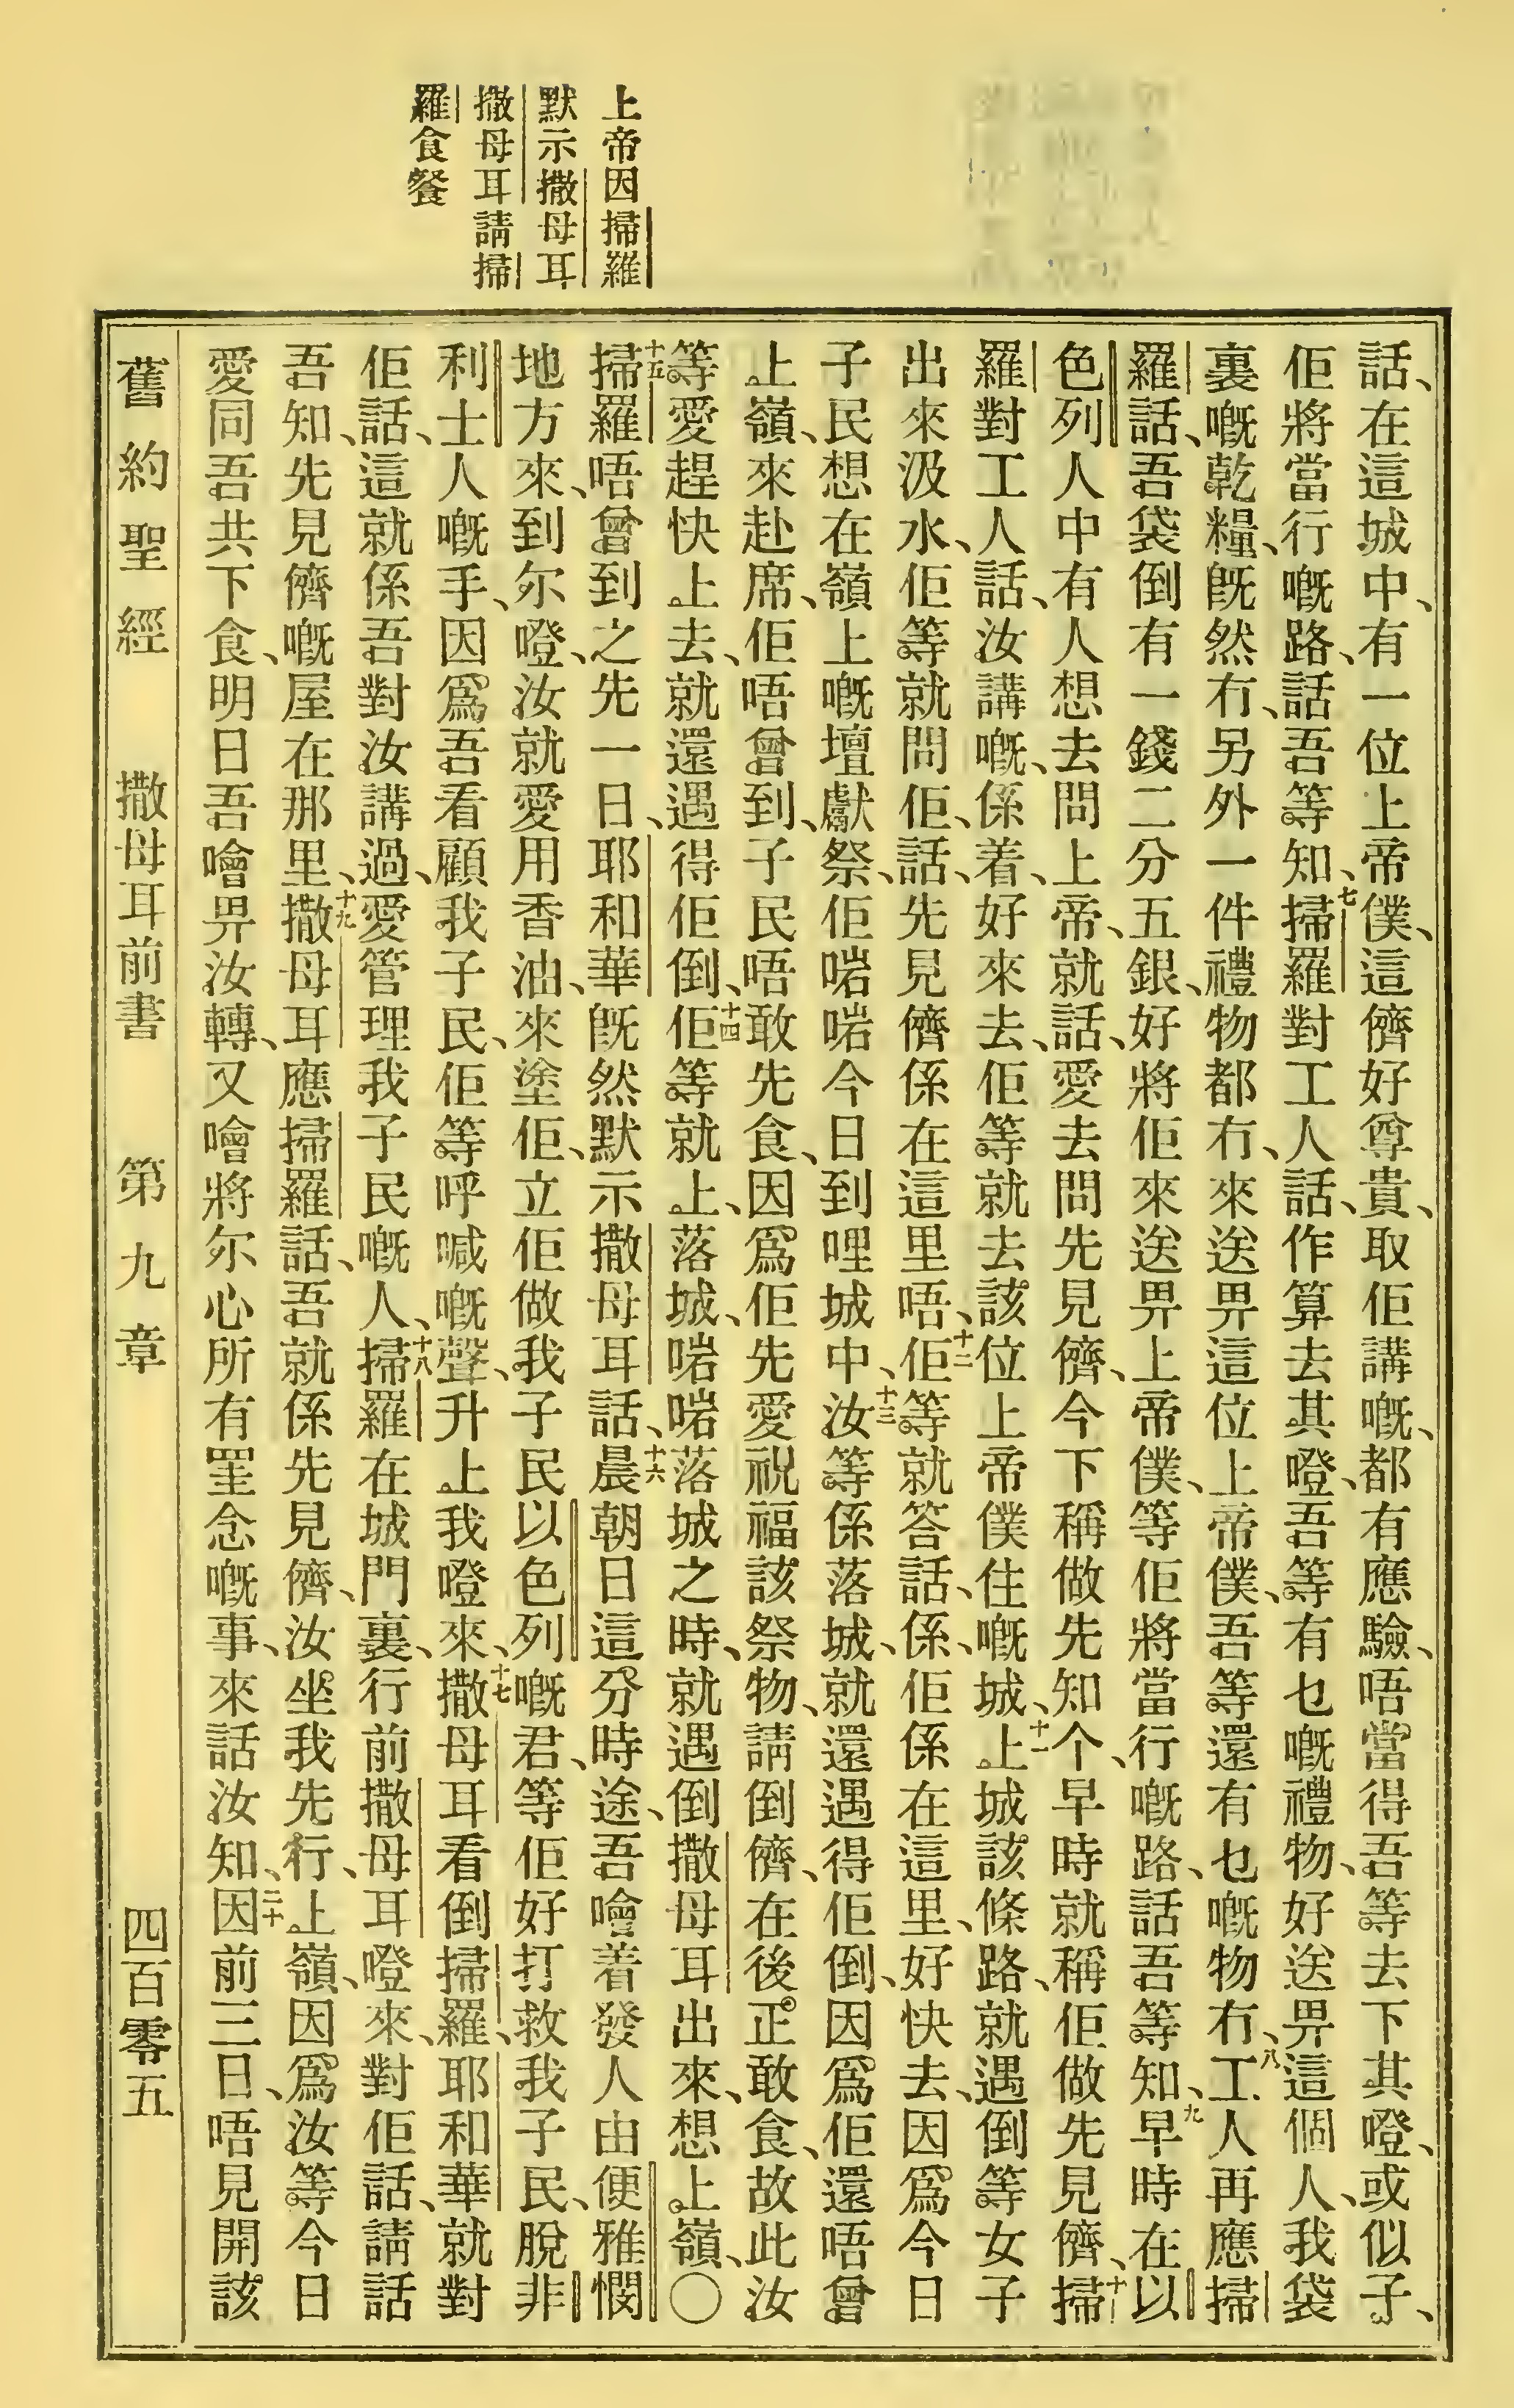 上帝因掃羅
默示撒母耳
撒母耳請掃
羅食餐
話、在這城中、有一位上帝僕、這儕好尊貴、取佢講嘅、都有應驗、唔當得吾等去下其噔、或似子、
佢將當行嘅路、話吾等知、七掃羅對工人話、作算去其噔、吾等有乜嘅禮物、好送畀這個人、我袋
裏嘅乾糧、旣然冇、另外一件禮物都冇、來送畀這位上帝僕、吾等還有乜嘅物冇、八工人再應掃
羅話、吾袋倒有一錢二分五銀、好將佢來送畀上帝僕、等佢將當行嘅路、話吾等知、九早時在以
色列人中有人想去問上帝、就話、愛去問先見儕、今下稱做先知个、早時就稱佢做先見儕、十掃
羅對工人話、汝講嘅、係着、好來去、佢等就去該位上帝僕住嘅城、十一上城該條路、就遇倒等女子
出來汲水、佢等就問佢、話、先見儕係在這里唔、十二佢等就答話、係、佢係在這里、好快去、因爲今日
子民想在嶺上嘅壇獻祭、佢啱啱今日到哩城中、十三汝等係落城、就還遇得佢倒、因爲佢還唔曾
上嶺、來赴席、佢唔曾到、子民唔敢先食、因爲佢先愛祝福該祭物、請倒儕、在後正敢食、故此汝
等愛趕快上去、就還遇得佢倒、十四佢等就上、落城、啱啱落城之時、就遇倒撒母耳出來、想上嶺、〇
十五掃羅唔曾到之先一日、耶和華旣然默示撒母耳話、十六晨朝日這分時途、吾噲着發人由便雅憫
地方來、到尔噔、汝就愛用香油、來塗佢、立佢做我子民以色列嘅君、等佢好打救我子民、脫非
利士人嘅手、因爲吾看顧我子民、佢等呼喊嘅聲、升上我噔來、十七撒母耳看倒掃羅、耶和華就對
佢話、這就係吾對汝講過、愛管理我子民嘅人、十八掃羅在城門裏、行前撒母耳噔來、對佢話、請話
吾知、先見儕嘅屋在那里、十九撒母耳應掃羅話、吾就係先見儕、汝坐我先行、上嶺、因爲汝等今日
愛同吾共下食、明日吾噲畀汝轉、又噲將尔心所有罣念嘅事、來話汝知、二十因前三日、唔見開該
舊約聖經　撒母耳前書　第九章　四百零五